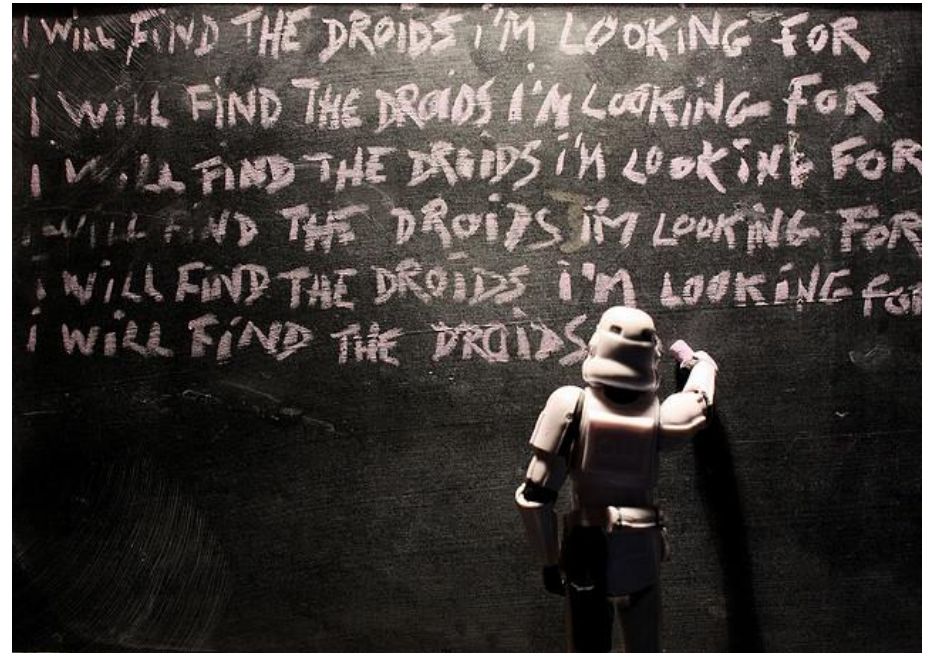 I WiLL FiND THE DROiDS i'M LOOKiNG FOR
i WiLL FiND THE DROiDS i'M LOOKiNG FOR
i WiLL FiND THE DROiDS i'M LOOKiNG FOR
i WiLL FiND THE DROiDS i'M LOOKiNG FOR
i WiLL FiND THE DROiDS i'M LOOKiNG FOR
i WiLL FiND THE DROiDS